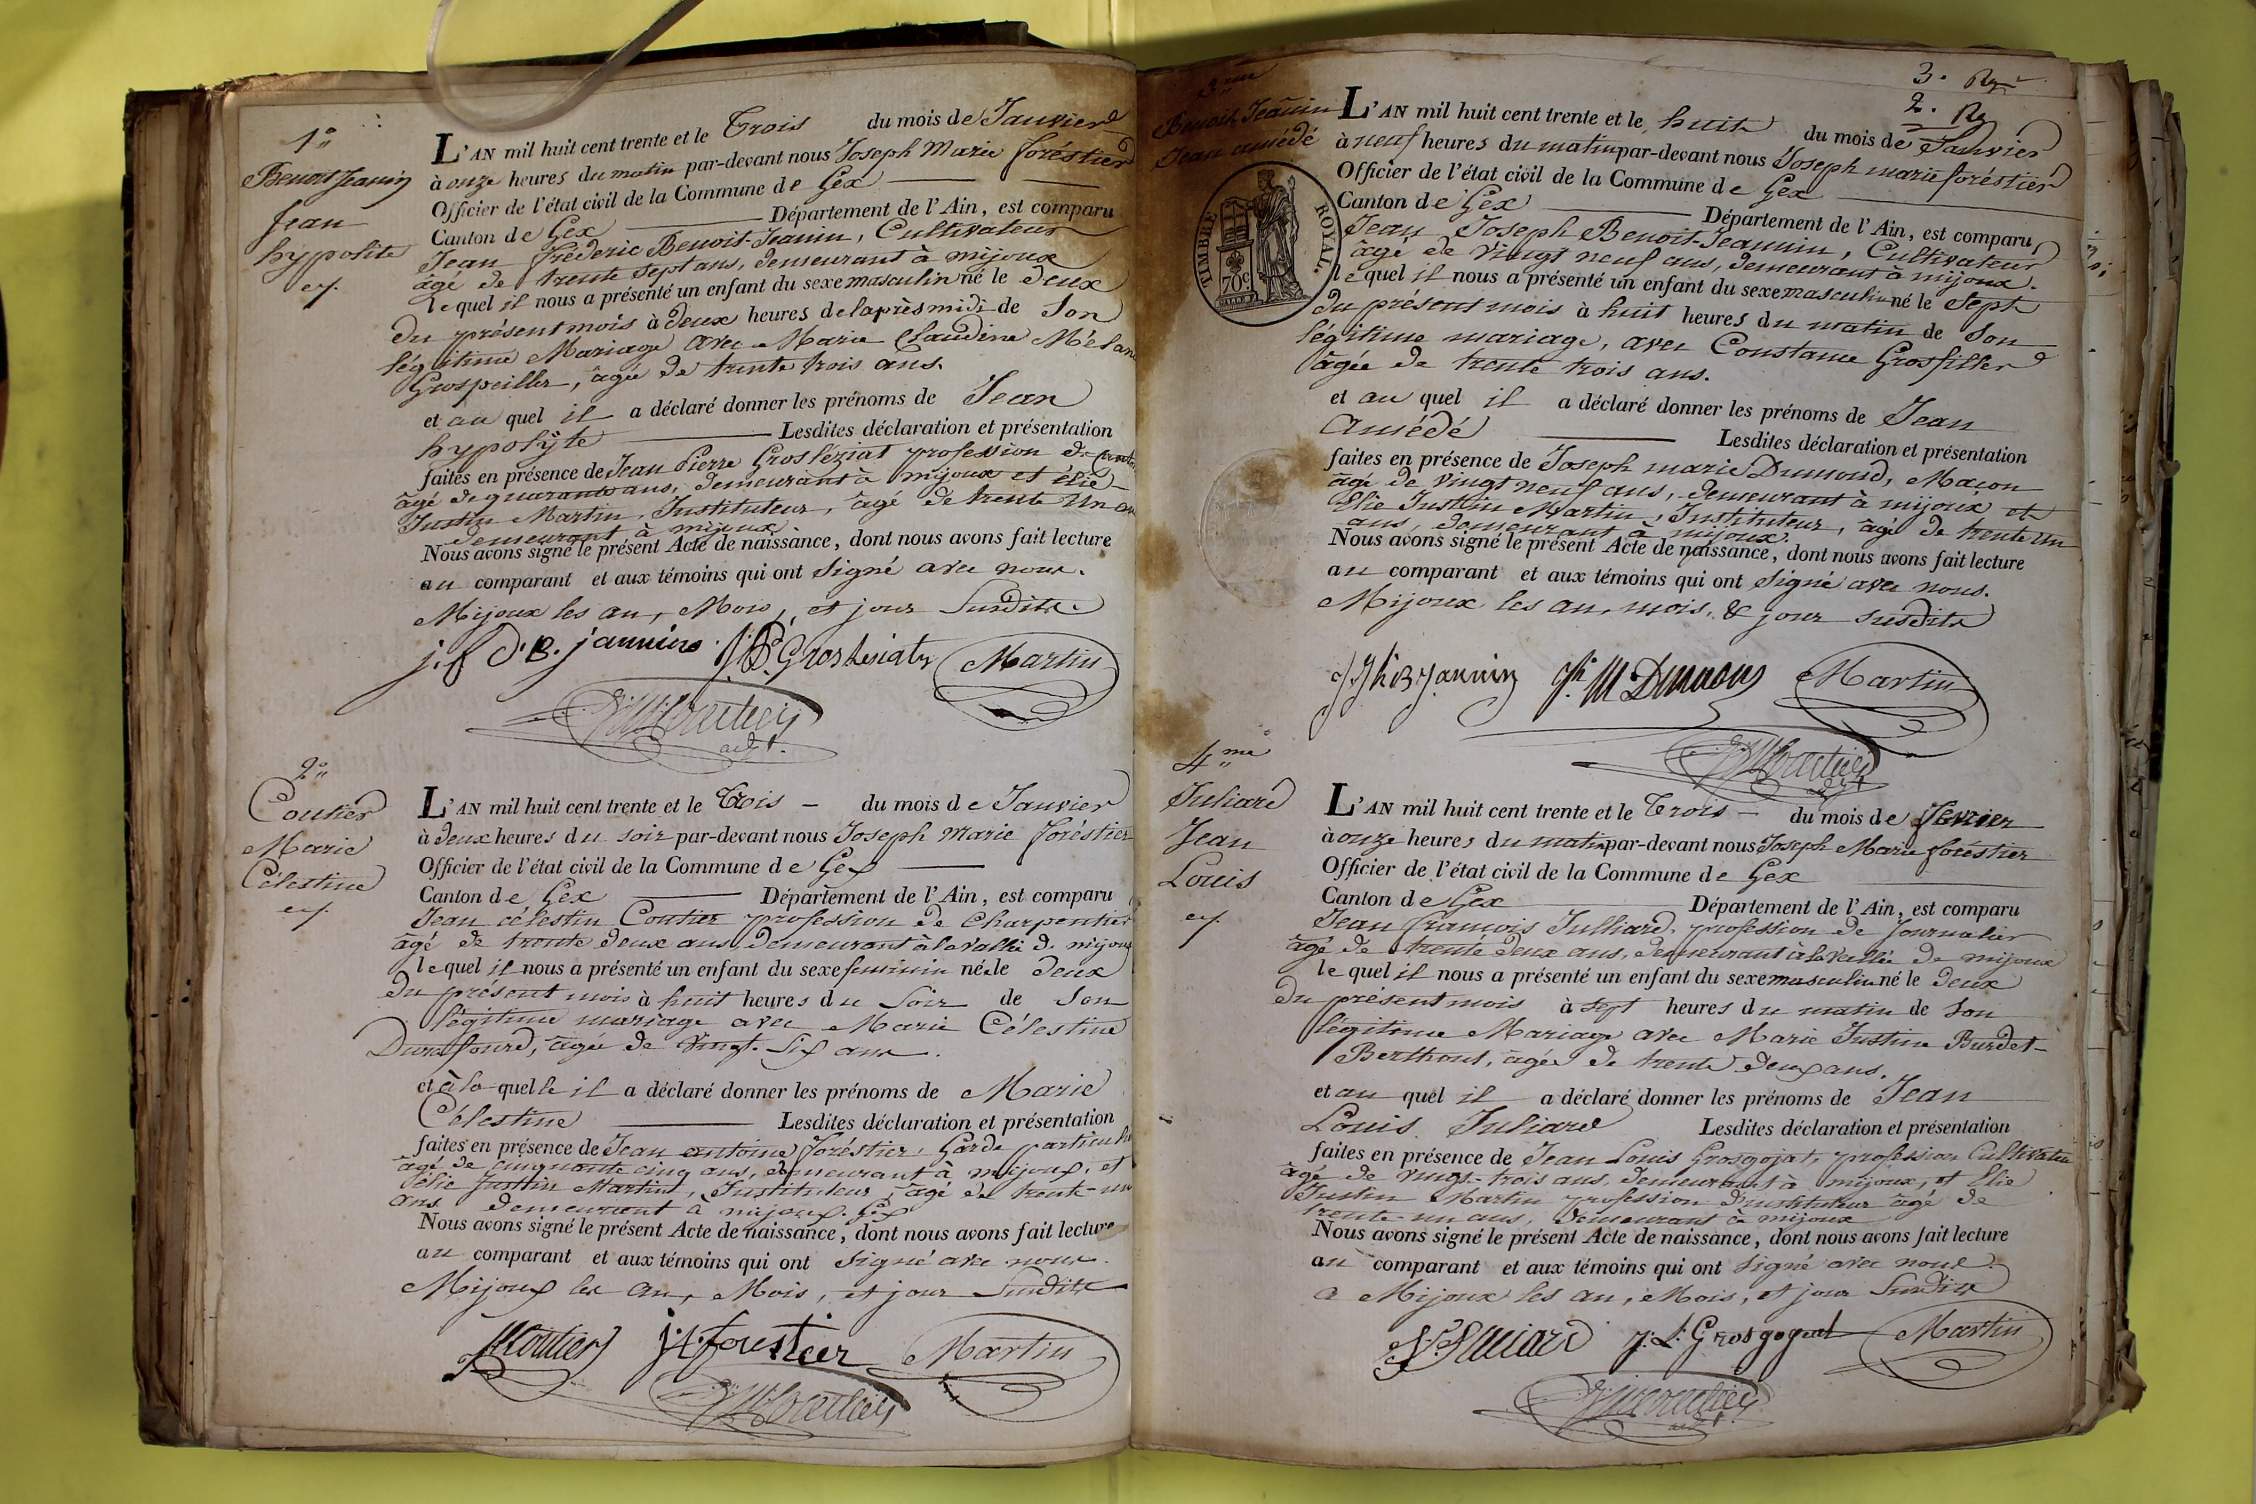 1°
Benoit Jeanin
Jean
hyppolite
L'AN mil huit cent trente et le Trois du mois de Janvier
à onze heures du matin par-devant nous Joseph Marie foréstier
Officier de l'état civil de la Commune de Gex
Canton de Gex Département de l'Ain, est comparu
Jean Fréderic Benoit-Jeanin, Cultivateur
âgé de trente sept ans, demeurant à mijoux
lequel il nous a présenté un enfant du sexe masculin né le deux
du présent mois à deux heures de laprès midi de Son
légitime Mariage avec Marie Claudine Mélan
Grospeiller, âgée de trente trois ans.
et au quel il a déclaré donner les prénoms de Jean
hypolyte Lesdites déclaration et présentation
faites en présence de Jean Pierre Grosléziat profession de
âgé de quarante ans, demeurant à mijoux et élie
Justin Martin, Instituteur, âgé de trente Un an
demeurant à mijoux.
Nous avons signé le présent Acte de naissance, dont nous avons fait lecture
au comparant et aux témoins qui ont Signé avec nous.
Mijoux les an, Mois, et jour Susdits.
j. f. B. jannin J.P. Groslesiat Martin
2°
Coutier
Marie
Célestine
L'AN mil huit cent trente et le Trois du mois de Janvier
à deux heures du soir par-devant nous Joseph Marie foréstier
Officier de l'état civil de la Commune de Gex
Canton de Gex Département de l'Ain, est comparu
Jean célestin Coutier profession de Charpentier
âgé de trente deux ans, demeurant à la vallée de mijoux
lequel il nous a présenté un enfant du sexe feminin née le deux
du présent mois à huit heures du Soir de Son
légitime mariage avec Marie Célestine
Durafourd, âgée de Vingt-Six ans.
et à la quelle il a déclaré donner les prénoms de Marie
Célestine Lesdites déclaration et présentation
faites en présence de Jean antoine foréstier, Garde particulie
âgé de cinquante cinq ans, demeurant à mijoux, et
élie Justin Martin, Instituteur, âgé de trente-un
ans demeurant à mijoux.
Nous avons signé le présent Acte de naissance, dont nous avons fait lecture
au comparant et aux témoins qui ont Signé avec nous.
Mijoux les an, Mois, et jour Susdits
Coutier j.A. forestier Martin
3. Rg
2. Rg
3eme
Benoit Jeanin
Jean amédé
TIMBRE ROYAL
70c
L'AN mil huit cent trente et le, huit du mois de Janvier
à neuf heures du matin par-devant nous Joseph marie foréstier
Officier de l'état civil de la Commune de Gex
Canton de Gex Département de l'Ain, est comparu
Jean Joseph Benoit-Jeannin, Cultivateur
âgé de vingt neuf ans, demeurant à mijoux.
lequel il nous a présenté un enfant du sexe masculin né le Sept
du présent mois à huit heures du matin de Son
légitime mariage, avec Constance Grosfiller
âgée de trente trois ans.
et au quel il a déclaré donner les prénoms de Jean
Amédé Lesdites déclaration et présentation
faites en présence de Joseph marie Dumond, Maçon
âgé de vingt neuf ans, demeurant à mijoux et
Elie Justin Martin, Instituteur, âgé de trente Un
ans, demeurant à mijoux.
Nous avons signé le présent Acte de naissance, dont nous avons fait lecture
au comparant et aux témoins qui ont Signé avec nous.
Mijoux les an, mois, & jour susdits
J Jh B Jannin Jh M Dumons Martin
4me
Juliard
Jean
Louis
L'AN mil huit cent trente et le Trois du mois de fevrier
à onze heures du matin par-devant nous Joseph Marie foréstier
Officier de l'état civil de la Commune de Gex
Canton de Gex Département de l'Ain, est comparu
Jean françois Julliard, profession de Journalier
âgé de trente deux ans, demeurant à la vallée de mijoux
lequel il nous a présenté un enfant du sexe masculin né le deux
du présent mois à sept heures du matin de Son
légitime Mariage avec Marie Justine Burdet-
Berthout, âgée de trente deux ans.
et au quel il a déclaré donner les prénoms de Jean
Louis Juliard Lesdites déclaration et présentation
faites en présence de Jean Louis Grosgojat, profession Cultivateu
âgé de vingt-trois ans, demeurant à mijoux, et Elie
Justin Martin profession d'instituteur âgé de
trente-un ans, demeurant à mijoux
Nous avons signé le présent Acte de naissance, dont nous avons fait lecture
au comparant et aux témoins qui ont signé avec nous
à Mijoux les an, Mois, et jour Susdits
J. L. Grosgogeat Martin